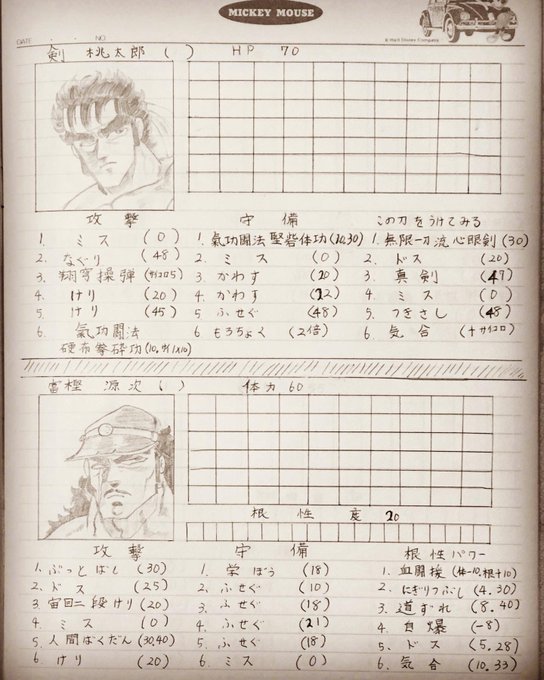 MICKEY MOUSE
DATE . . NO.
© Walt Disney Company
剣 桃太郎 ( ) HP 70
攻撃 守備 この刀をうけてみろ
1. ミス (0) 1. 氣功闘法堅砦体功(20,30) 1. 無限一刀流心眼剣(30)
2. なぐり (48) 2. ミス (0) 2. ドス (20)
3. 翔穹操弾(サイコロ5) 3. かわす (20) 3. 真剣 (47)
4. けり (20) 4. かわす (22) 4. ミス (0)
5. けり (45) 5. ふせぐ (48) 5. つきさし (48)
6. 氣功闘法 6. もろちょく (2倍) 6. 気合 (+サイコロ)
硬布拳砕功(10,サイ×10)
富樫 源次 ( ) 体力 60
根性度 20
攻撃 守備 根性パワー
1. ぶっとばし (30) 1. 学ぼう (18) 1. 血闘援 (体-10,根+10)
2. ドス (25) 2. ふせぐ (10) 2. にぎりつぶし (4.30)
3. 宙回二段けり (20) 3. ふせぐ (18) 3. 道ずれ (8.40)
4. ミス (0) 4. ふせぐ (21) 4. 自爆 (-8)
5. 人間ばくだん (30,40) 5. ふせぐ (18) 5. ドス (5.28)
6. けり (20) 6. ミス (0) 6. 気合 (10.33)